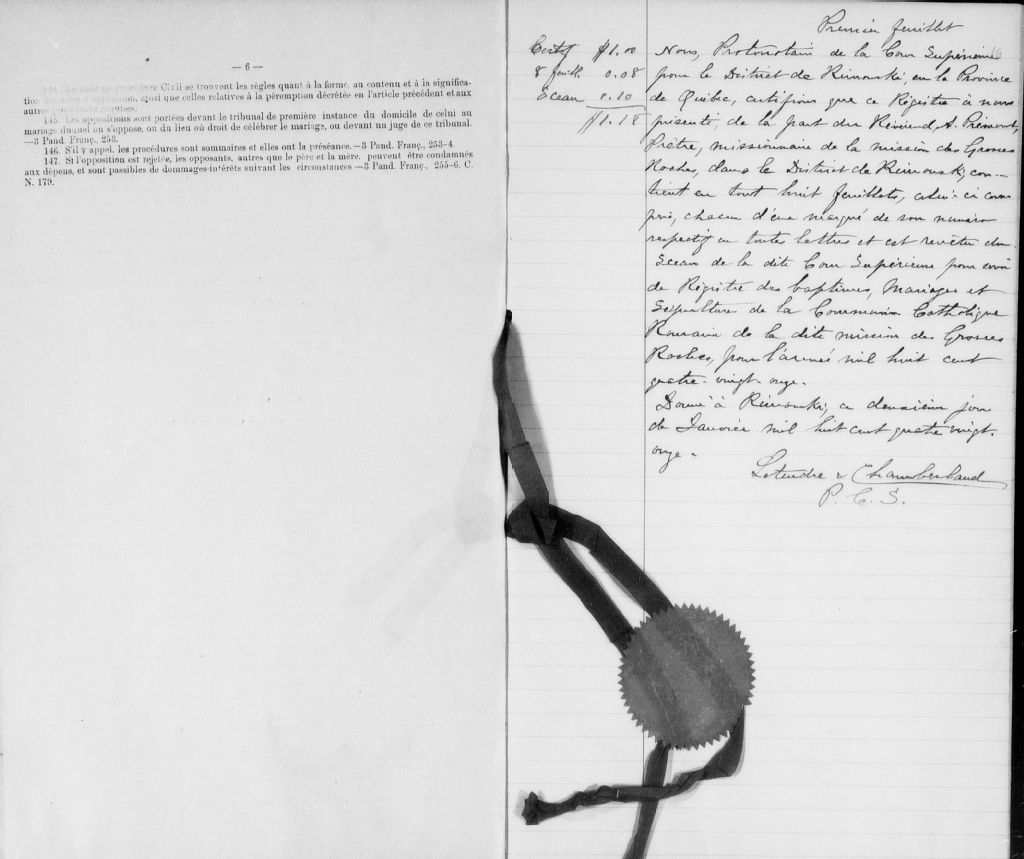 — 6 —
994. Au code de Procédure Civil se trouvent les règles quant à la forme, au contenu et à la significa-
tion d'opposition, ainsi que celles relatives à la péremption décrétée en l'article précédent et aux
autres
145. Les oppositions sont portées devant le tribunal de première instance du domicile de celui au
mariage duquel on s'oppose, ou du lieu où droit de célébrer le mariage, ou devant un juge de ce tribunal.
—3 Pand. Franç., 253.
146. S'il y appel, les procédures sont sommaires et elles ont la préséance.—3 Pand. Franç., 253-4.
147. Si l'opposition est rejetée, les opposants, autres que le père et la mère, peuvent être condamnés
aux dépens, et sont passibles de dommages-intérêts suivant les circonstances—3 Pand. Franç., 255-6. C.
N. 179.
Premier feuillet
Certif $1.00
8 feuill. 0.08
Sceau 0.10
$1.18
Nous, Protonotaire de la Cour Supérieure
pour le District de Rimouski, en la Province
de Québec, certifions que ce Régistre à nous
présenté, de la part du Révérend A.
Prêtre, missionnaire de la mission des Grosses
Roches, dans le District de Rimouski, con-
tient en tout huit feuillets, celui-ci com
pris, chacun d'eux marqué de son numéro
respectif en toutes lettres et est revêtu du
Sceau de la dite Cour Supérieure pour servir
de Régistre des baptêmes, Mariages et
Sépulture de la Communion Catholique
Romaine de la dite mission des Grosses
Roches, pour l'année mil huit cent
quatre-vingt-onze.
Donné à Rimouski, ce deuxième jour
de Janvier mil huit cent quatre vingt-
onze.
Letendre & Chamberland
P. C. S.